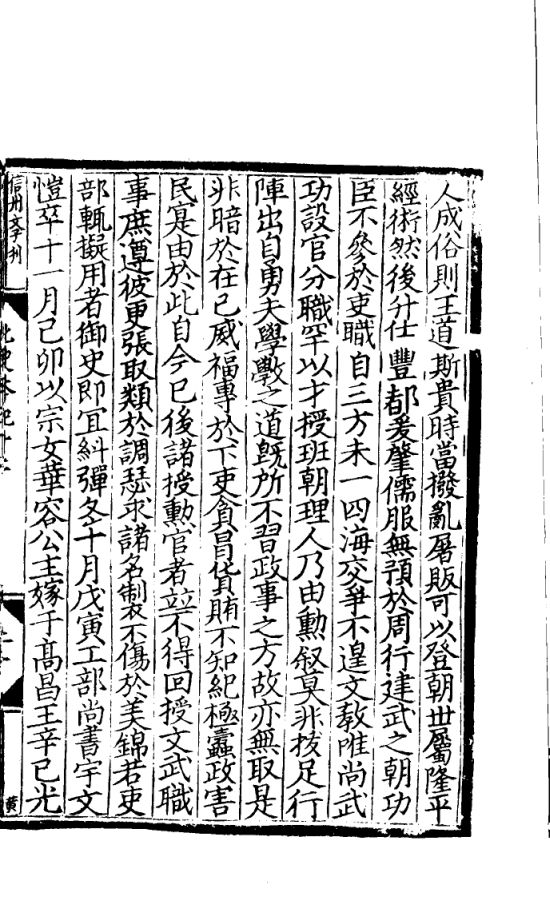 人成俗則王道斯貴時當撥亂屠販可以登朝世屬隆平
經術然後升仕豐都爰肇儒服無預於周行建武之朝功
臣不參於吏職自三方未一四海交爭不遑文教唯尚武
功設官分職罕以才授班朝理人乃由勳叙莫非拔足行
陣出自勇夫學斆之道旣所不習政事之方故亦無取是
非暗於在己威福專於下吏貪冒貨賄不知紀極蠹政害
民寔由於此自今已後諸授勳官者竝不得回授文武職
事庶遵彼更張取類於調瑟求諸名製不傷於美錦若吏
部輒擬用者御史即冝糾彈冬十月戊寅工部尚書宇文
愷卒十一月己卯以宗女華容公主嫁于髙昌王辛巳光
信州路學刊
北史本紀十二
黄